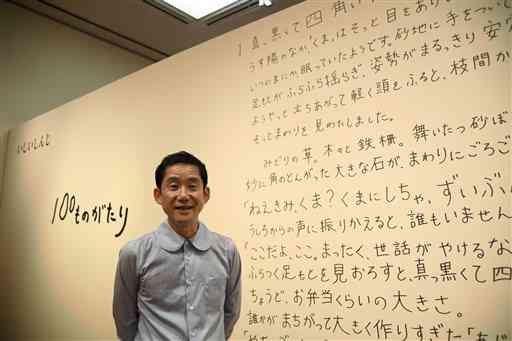 いしいしんじ
100ものがたり
1 真っ黒くて四角い
「くま」は、そっと目をあ
うす陽のなか
いつのまにか、眠っていたようです。砂地に手をつい
足もとが、ふらふら揺らぎ、姿勢がまるっきり安
ようやっと立ちあがって軽く頭をふると、枝間か
そっとまわりを見わたしました。
みどりの草。木々と鉄柵。舞いたつ砂ぼ
妙に角のとんがった大きな石が、まわりにごろご
「ねえきみ、くま?くまにしちゃ、ずいぶん
うしろからの声に振りかえると、誰もいません
「ここだよ、ここ。まったく、世話がやけるな
ふらつく足もとを見おろすと、真っ黒くて四
ちょうど、お弁当くらいの大きさ。
誰かがまちがって大きく作りすぎた「